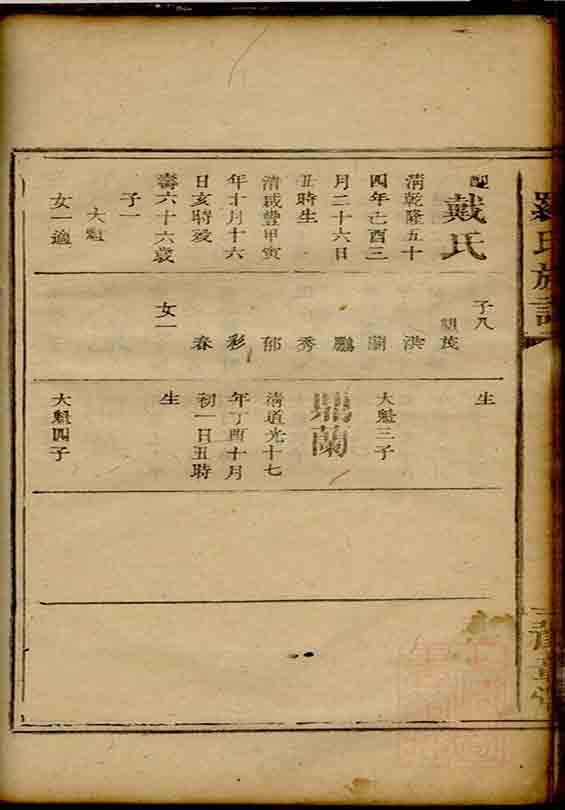 羅氏族譜
豫章堂
配戴氏
清乾隆五十
四年己酉三
月二十六日
丑時生
清咸豐甲寅
年十月十六
日亥時歿
壽六十六歲
子一
大魁
女一適
子八
茂
洪
蘭
鵬
秀
郁
彩
春
女一
生
大魁三子
蘭
清道光十七
年丁酉十月
初一日丑時
生
大魁四子